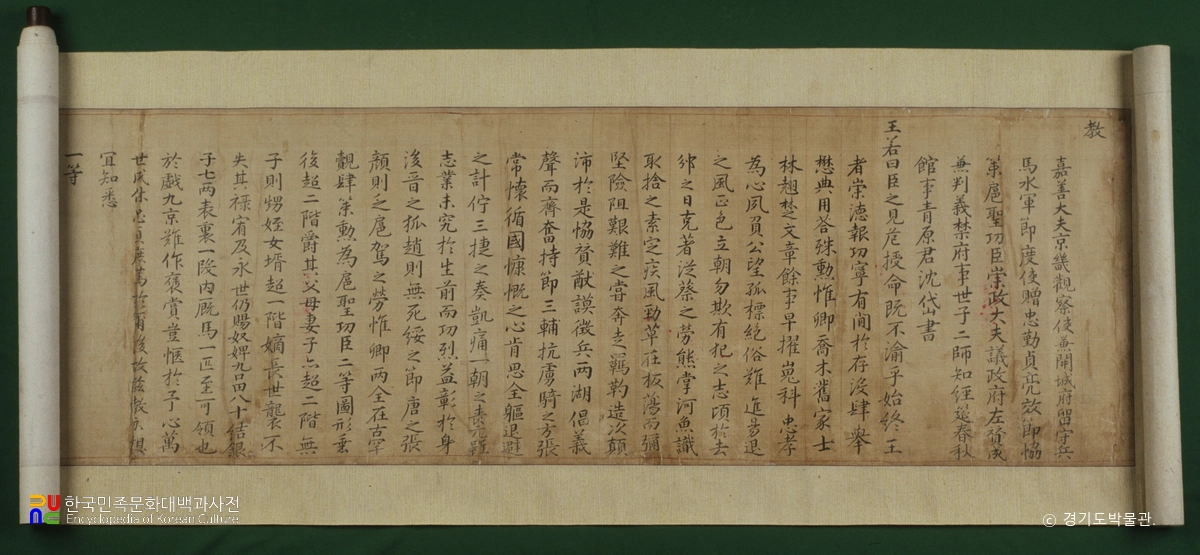 教
嘉善大夫京畿觀察使兼開城府留守兵
馬水軍節度使贈忠勤貞亮效節協
策扈聖功臣崇政大夫議政府左贊成
兼判義禁府事世子二師知經筵春秋
館事青原君沈岱書
王若曰臣之見危授命旣不渝乎始終王
者崇德報功寧有間於存沒肆擧
懋典用答殊勳惟卿喬木舊家士
林翹楚文章餘事早擢嵬科忠孝
為心夙負公望孤標絕俗難進易退
之風正色立朝勿欺有犯之志頃於去
邠之日克著從蔡之勞熊掌河魚識
取捨之素定疾風勁草在板蕩而彌
堅險阻艱難之嘗奔走羈靮造次顛
沛於是恊贊猷謨徵兵兩湖倡義
聲而齊奮持節三輔抗虜騎之方張
常懷循國慷慨之心肯思全軀退避
之計佇三捷之奏凱痛一朝之
志業未究於生前而功烈益彰於身
後晉之狐趙則無死綏之節唐之張
顔則之扈駕之勞惟卿兩全在古罕
覩肆策勳為扈聖功臣二等圖形垂
後超二階爵其父母妻子亦超二階無
子則甥姪女壻超一階嫡長世襲不
失其祿宥及永世仍賜奴婢九口田八十結銀
子七兩表裏一段內廐馬一匹至可領也
於戲九京難作褒賞豈愜於予心萬
世 後故玆敎示想
宜知悉
一等
한국민족문화대백과사전
Encyclopedia of Korean Culture
© 경기도박물관.